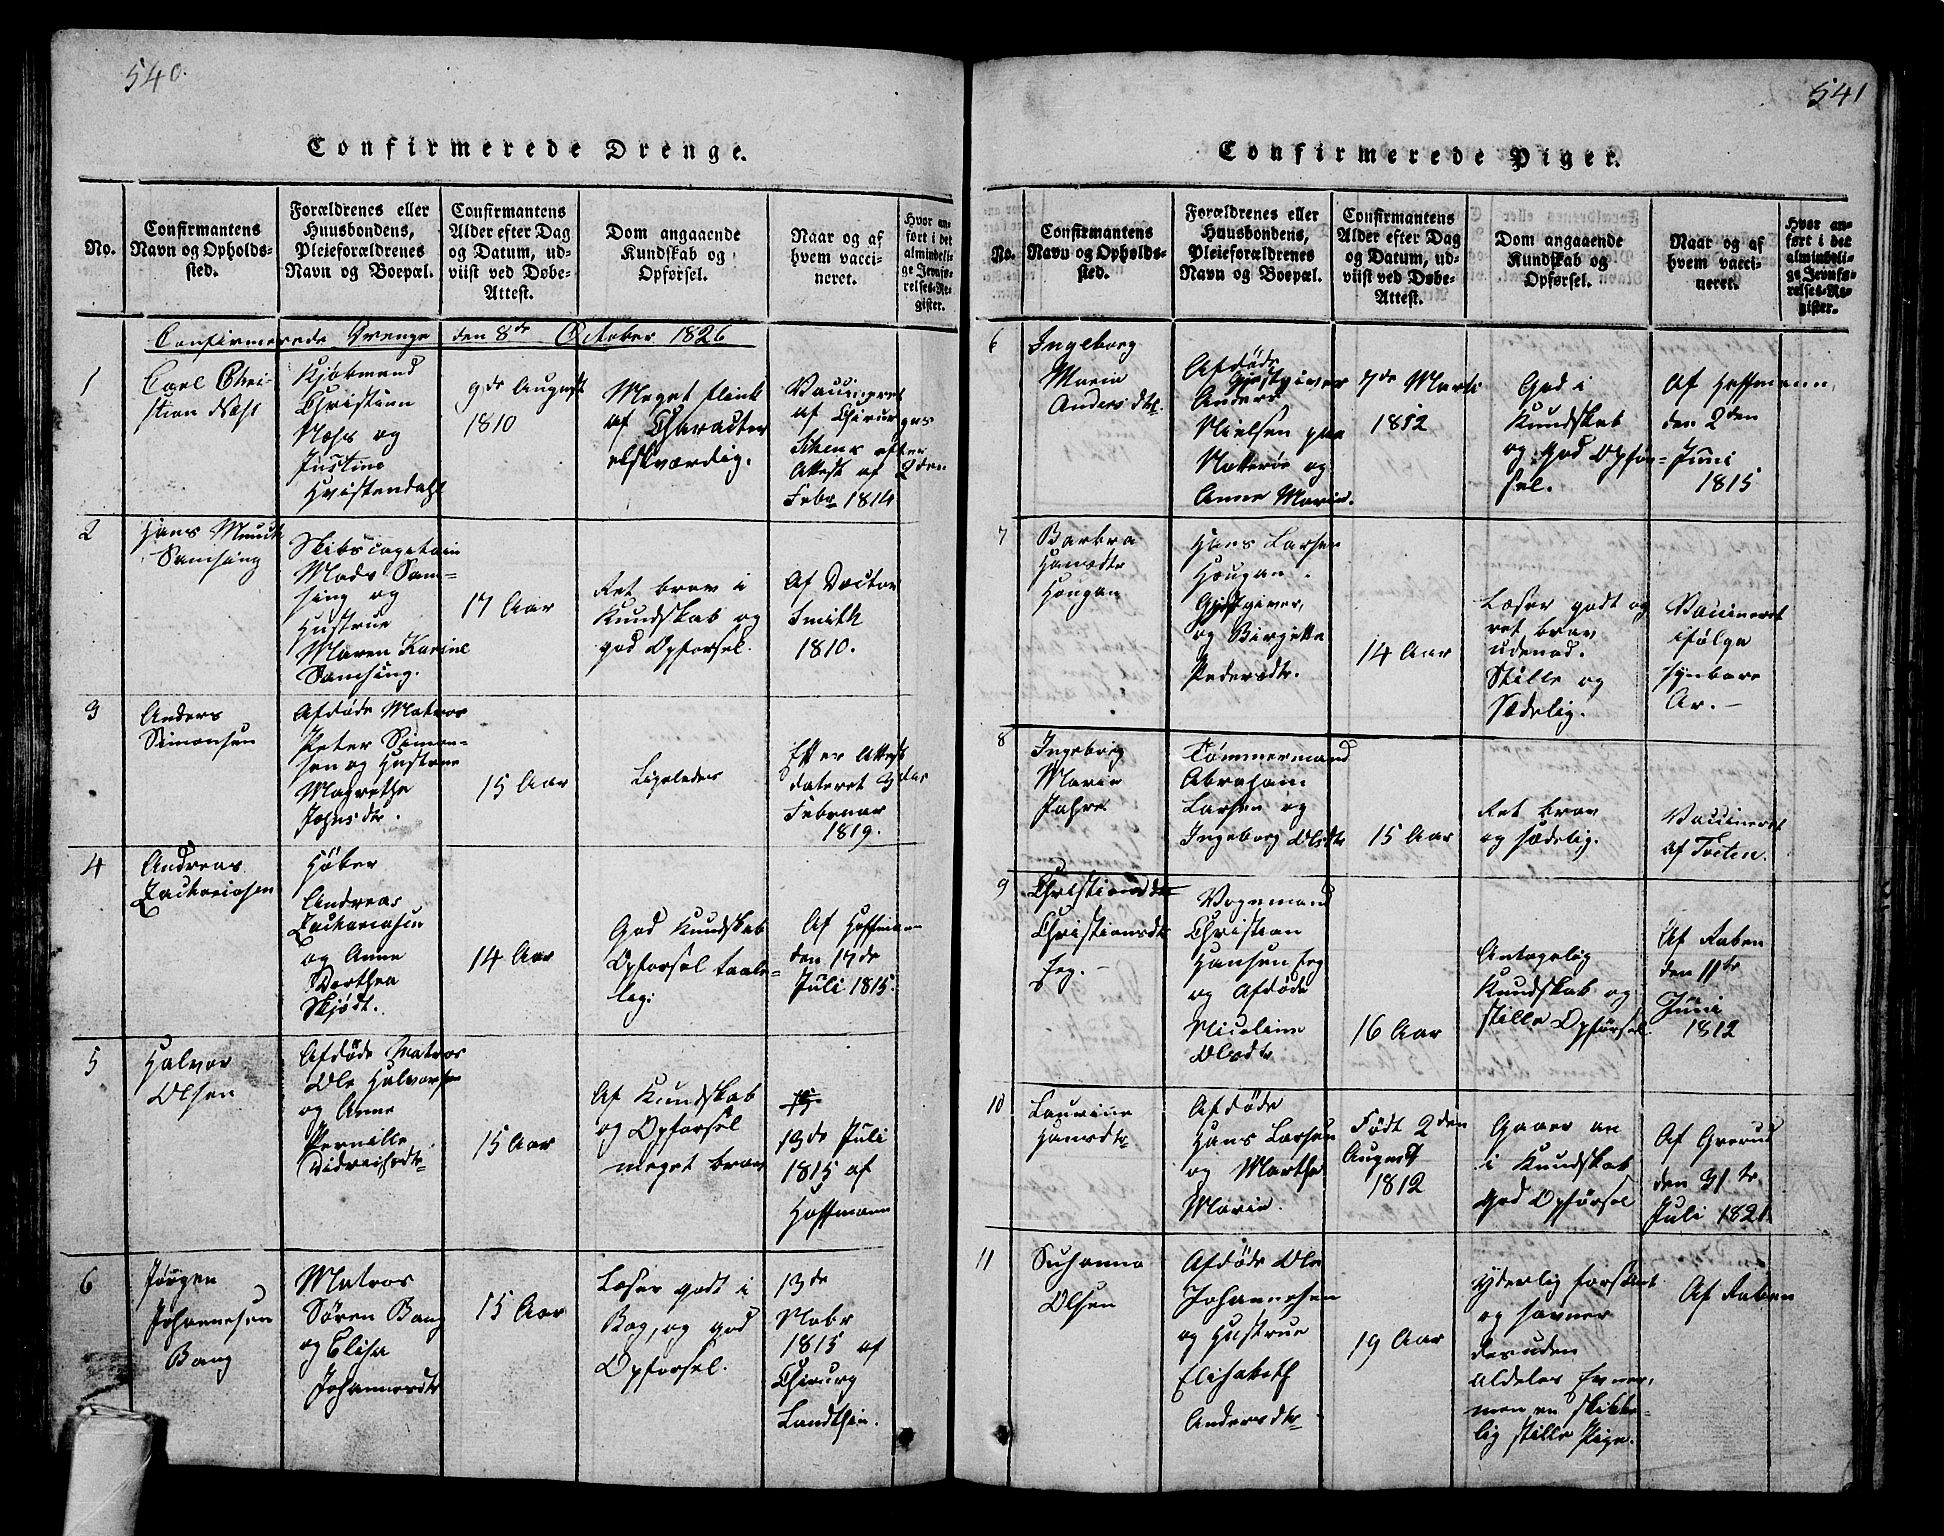 540.
Confirmerede Drenge.
No.
Confirmantens
Navn og Opholds-
sted.
Forældrenes eller
Huusbondens,
Pleieforældrenes
Navn og Boepæl.
Confirmantens
Alder efter Dag
og Datum, ud-
viist ved Døbe-
Attest.
Dom angaaende
Kundskab og
Opførsel.
Naar og af
hvem vacci-
neret.
Hvor an-
ført i det
almindeli-
ge Jevnfø-
relses-Re-
gister.
Confirmerede Drenge den 8de October 1826
1
Carl Chri-
stian Næss
Kjøbmand
Christian
Næss og
Justine
Hvistendahl
9de August
1810
Meget flink
af Character
elskværdig.
Vaccineret
af Chirurgus
efter
Attest af 2den
Febr 1814
2
Hans Munch
Samsing
Skibscapitain
Mads Sam-
sing og
Hustrue
Maren Karine
Samsing.
17 Aar
Ret brav i
Kundskab og
god Opførsel.
Af Doctor
Smith
1810.
3
Anders
Simonsen
Afdøde Matros
Peter Simon-
sen og Hustrue
Magrethe
Johnsdtr.
15 Aar
Ligeledes
Efter Attest
dateret 9de
Februar
1819.
4
Andreas
Zachariasen
Høker
Andreas
Zachariasen
og Anne
Dorthea
Skjødt.
14 Aar
God Kundskab
Opførsel taale-
lig.
Af Hoffmann
den 17de
Juli 1815.
5
Halvor
Olsen
Afdøde Matros
Ole Halvorsen
og Anne
Pernille
Didrichsdtr
15 Aar
Af Kundskab
og Opførsel
meget brav
13de Juli
1815 af
Hoffmann
6
Jørgen
Johannesen
Bang
Matros
Søren Bang
og Elisa
Johannesdtr
15 Aar
Læser godt i
Bog, og god
Opførsel.
13de
Nobr
1815 af
Chirurg
541
Confirmerede Piger.
No.
Confirmantens
Navn og Opholds-
sted.
Forældrenes eller
Huusbondens,
Pleieforældrenes
Navn og Boepæl.
Confirmantens
Alder efter Dag
og Datum, ud-
viist ved Døbe-
Attest.
Dom angaaende
Kundskab og
Opførsel.
Naar og af
hvem vacci-
neret.
Hvor an-
ført i det
almindeli-
ge Jevnfø-
relses-Re-
gister.
6
Ingeborg
Marie
Andersdtr.
Afdøde
Gjestgiver
Anders
Nielsen paa
Natterøe og
Anne Marie.
7de Marti
1812
God i
Kundskab
og god Opfør-
sel.
Af Hoffmann,
den 2den
Juni
1815
7
Barbra
Hansdtr
Hougan
Hans Larsen
Hougan.
Gjestgiver,
og Birgitte
Pedersdtr.
14 Aar
Læser godt og
ret brav
udenad.
Stille og
Sædelig.
Vaccineret
ifølge
synbare
Ar.-
8
Ingeborg
Marie
Jahre
Tømmermand
Abraham
Larsen og
Ingeborg Olsdtr
15 Aar
Ret brav
og sædelig.
Vaccineret
af Tveten.
9
Christiansdtr
Christiansdtr
Eeg.-
Vognmand
Christian
Hansen Eeg
og Afdøde
Nicoline
Olsdtr
16 Aar
Antagelig
Kundskab og
stille Opførsel
Af Raben
den 11te
Juni
1812
10
Laurine
Hansdtr
Afdøde
Hans Larsen
og Marthe
Marie.
Født 2den
August
1812
Gaaer an
i Kundskab
god Opførsel
Af Grerud
den 31te
Juli 1821.
11
Susanna
Olsen
Afdøde Ole
Johannesen
og Hustrue
Elisabeth
Andersdtr
19 Aar
Yderlig forsømt
og savner
desuden
aldeles Evner,
men en skikke-
lig stille Pige.
Af Raben